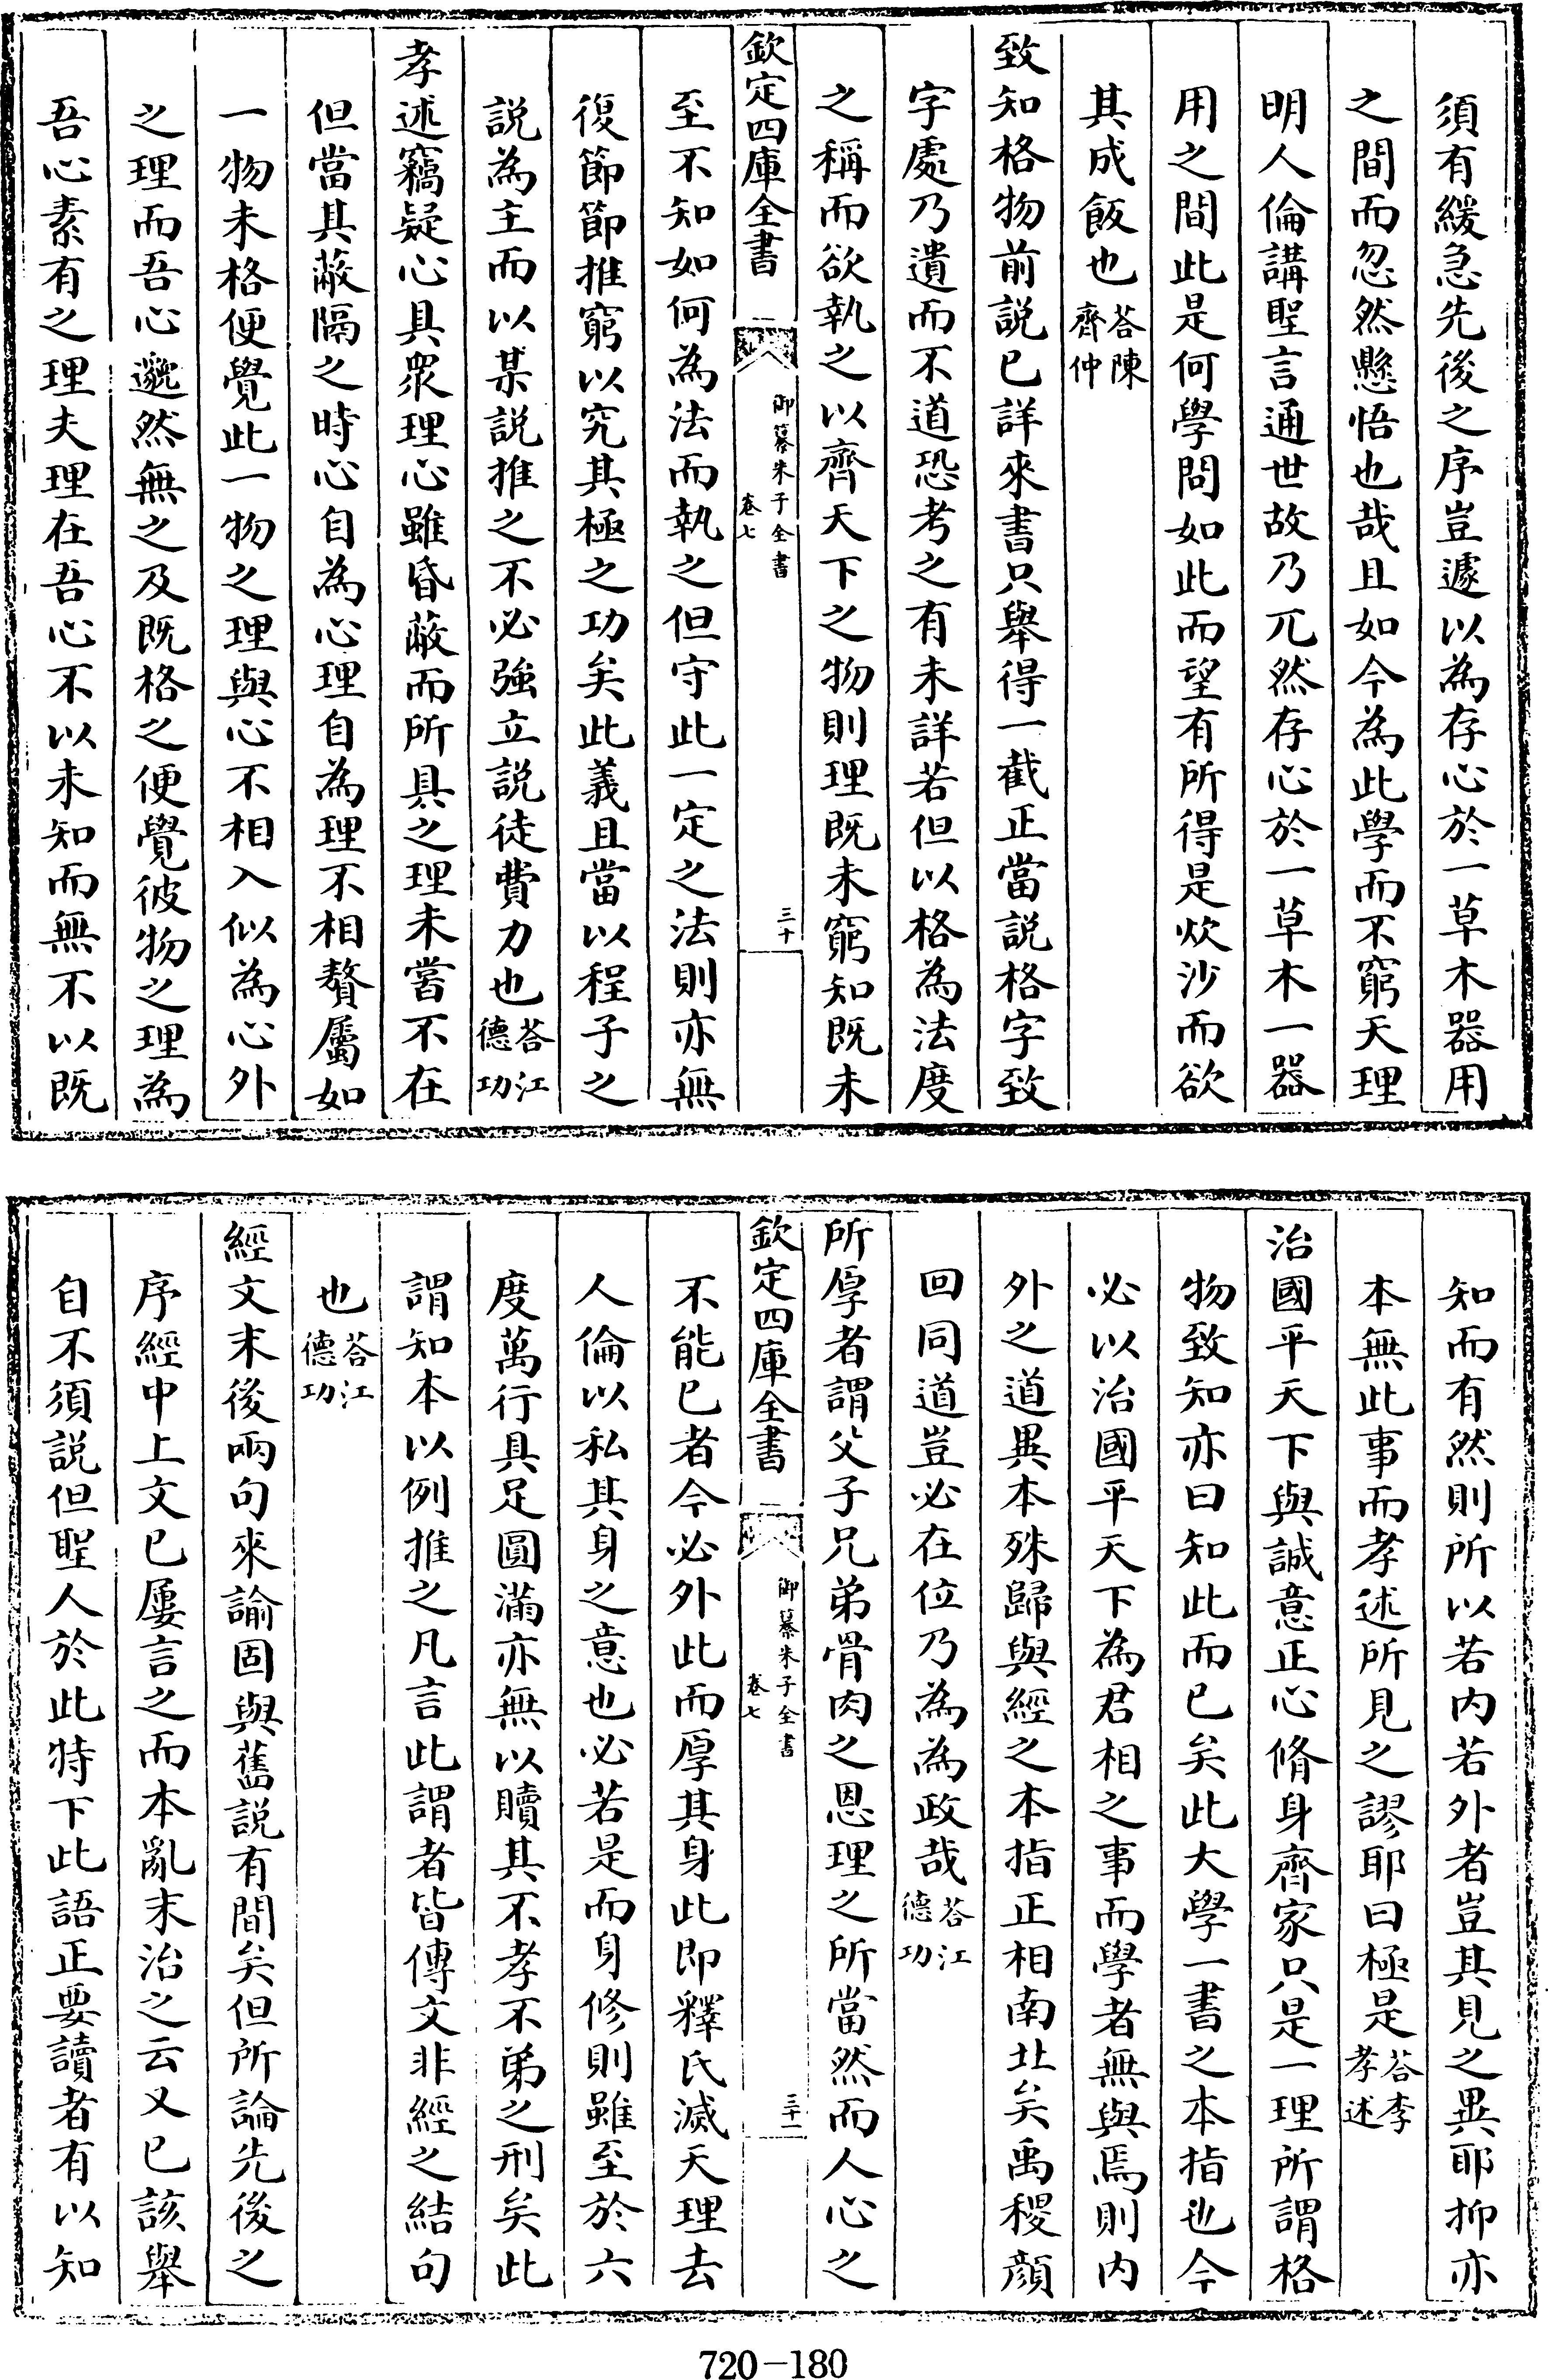 須有緩急先後之序豈遽以為存心於一草木器用
之間而忽然懸悟也哉且如今為此學而不窮天理
明人倫講聖言通世故乃兀然存心於一草木一器
用之間此是何學問如此而望有所得是炊沙而欲
其成飯也答陳齊仲
致知格物前説已詳來書只舉得一截正當説格字致
字處乃遺而不道恐考之有未詳若但以格為法度
之稱而欲執之以齊天下之物則理既未窮知既未
欽定四庫全書
御纂朱子全書
卷七
三十
至不知如何為法而執之但守此一定之法則亦無
復節節推窮以究其極之功矣此義且當以程子之
説為主而以某説推之不必強立説徒費力也答江德功
孝述竊疑心具衆理心雖昏蔽而所具之理未嘗不在
但當其蔽隔之時心自為心理自為理不相贅屬如
一物未格便覺此一物之理與心不相入似為心外
之理而吾心邈然無之及既格之便覺彼物之理為
吾心素有之理夫理在吾心不以未知而無不以既
知而有然則所以若内若外者豈其見之異耶抑亦
本無此事而孝述所見之謬耶曰極是答李孝述
治國平天下與誠意正心脩身齊家只是一理所謂格
物致知亦曰知此而已矣此大學一書之本指也今
必以治國平天下為君相之事而學者無與焉則内
外之道異本殊歸與經之本指正相南北矣禹稷顔
回同道豈必在位乃為為政哉答江德功
所厚者謂父子兄弟骨肉之恩理之所當然而人心之
欽定四庫全書
御纂朱子全書
卷七
三十一
不能已者今必外此而厚其身此即釋氏滅天理去
人倫以私其身之意也必若是而身修則雖至於六
度萬行具足圓滿亦無以贖其不孝不弟之刑矣此
謂知本以例推之凡言此謂者皆傳文非經之結句
也答江德功
經文末後兩句來諭固與舊説有間矣但所論先後之
序經中上文已屢言之而本亂末治之云又已該舉
自不須説但聖人於此特下此語正要讀者有以知
720-180